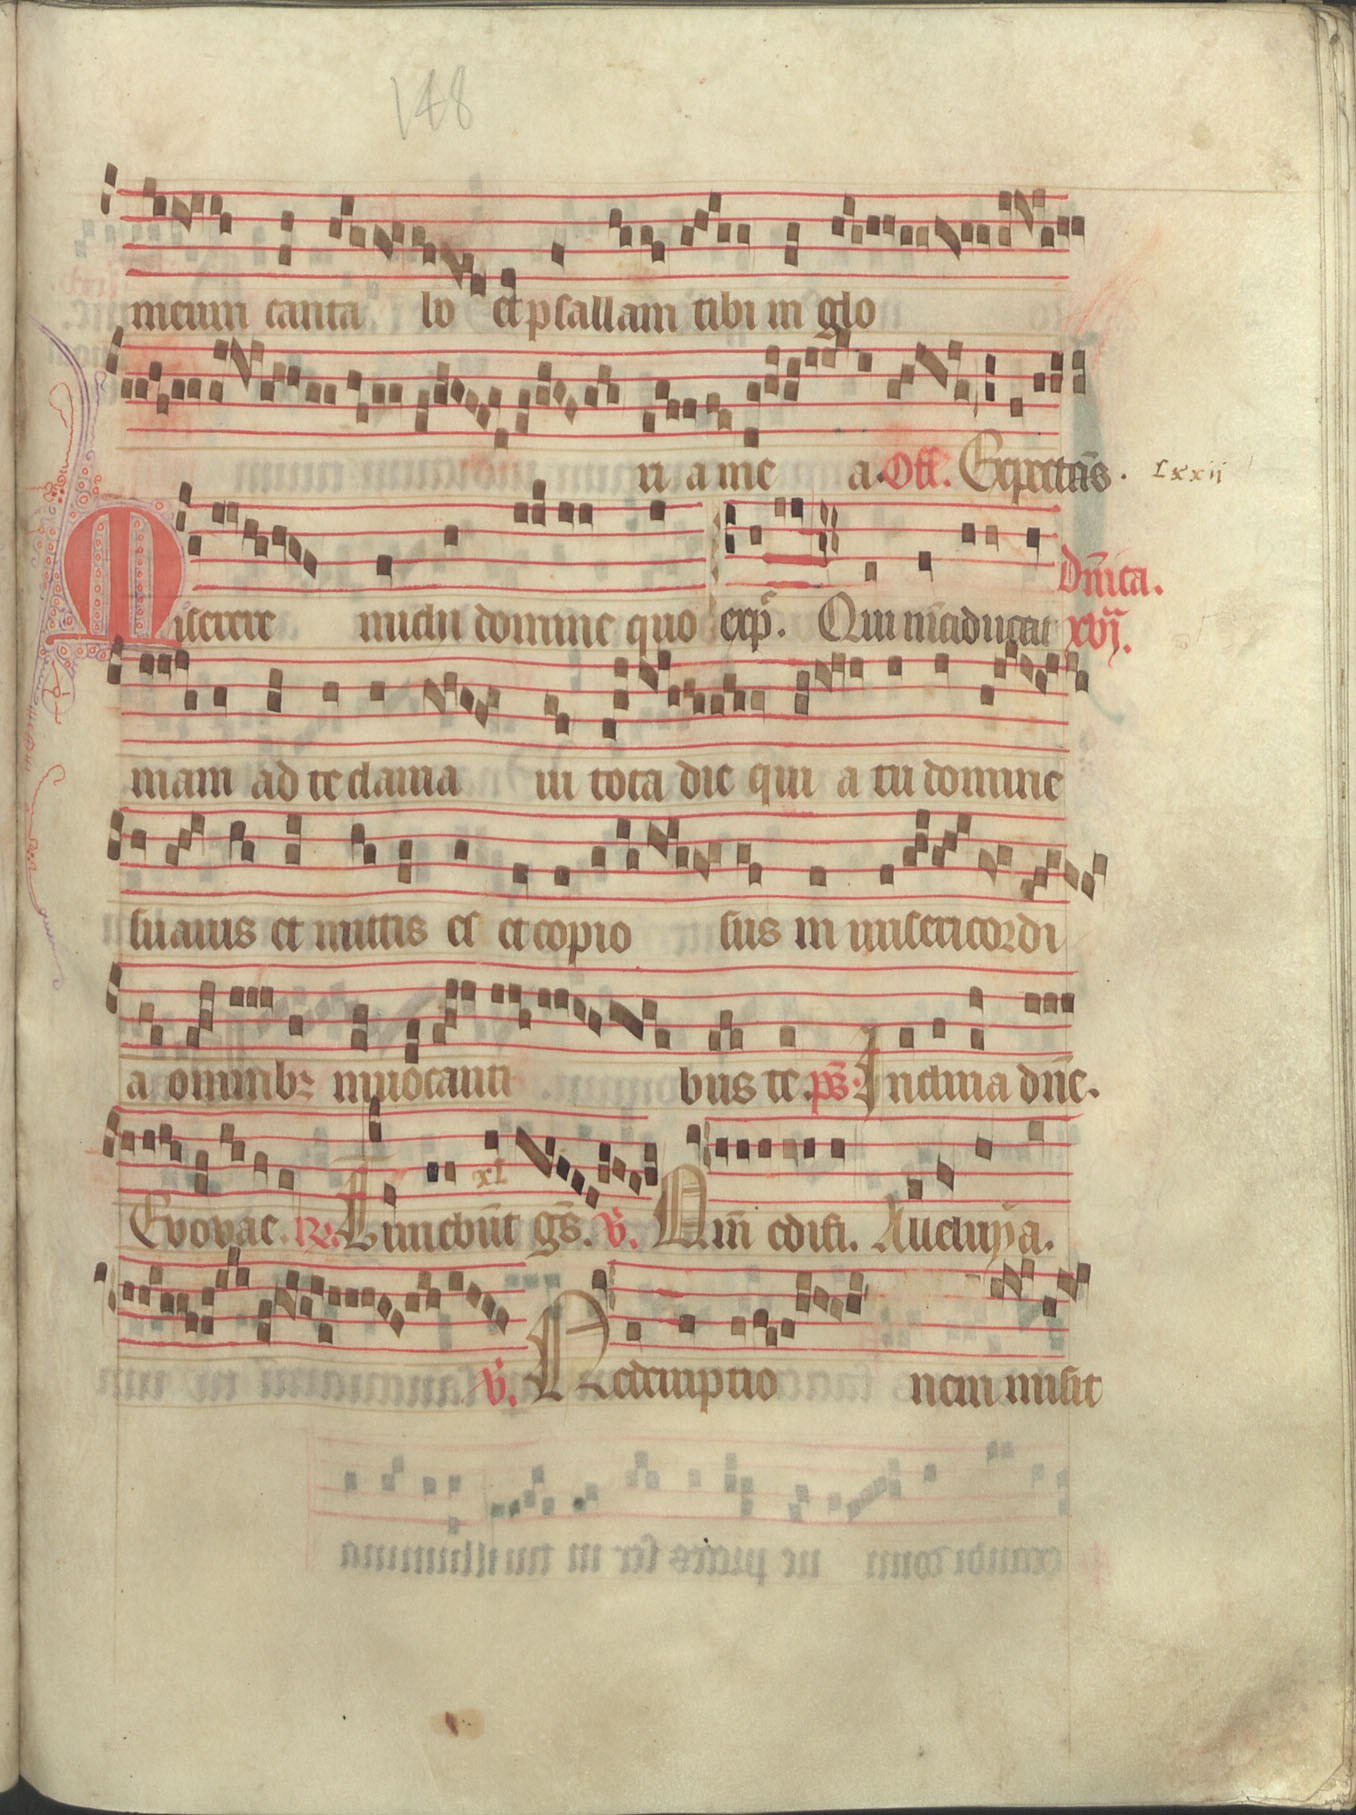 148
meum canta bo et psallam tibi in glo
ri a me a. Off. Expectās. Lxxii
Miserere michi domine quo exp̄. Qui māducat Dn̄ica. xvj.
niam ad te clama ui tota die qui a tu domine
suauis et mittis es et copio sus in misericordi
a omnibꝫ inuocanti bus te. ps. Inclina dn̄e.
Evovae. R. Timebūt gs. xl V. Qm̄ edifi. Alleluya.
V. Redemptio nem misit